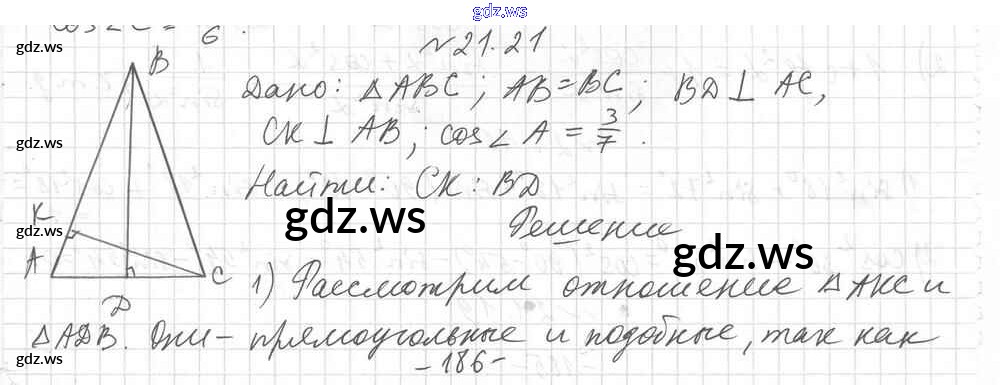 gdz.ws
cos∠C = 6.
gdz.ws
№21.21
B
Дано: △ABC; AB=BC; BD⊥AC,
gdz.ws
CK⊥AB; cos∠A = 3/7.
Найти: CK:BD
K
gdz.ws
gdz.ws
Решение
gdz.ws
A
C
D
1) Рассмотрим отношение △AKC и
△ADB. Они – прямоугольные и подобные, так как
gdz.ws
gdz.ws
gdz.ws
-186-